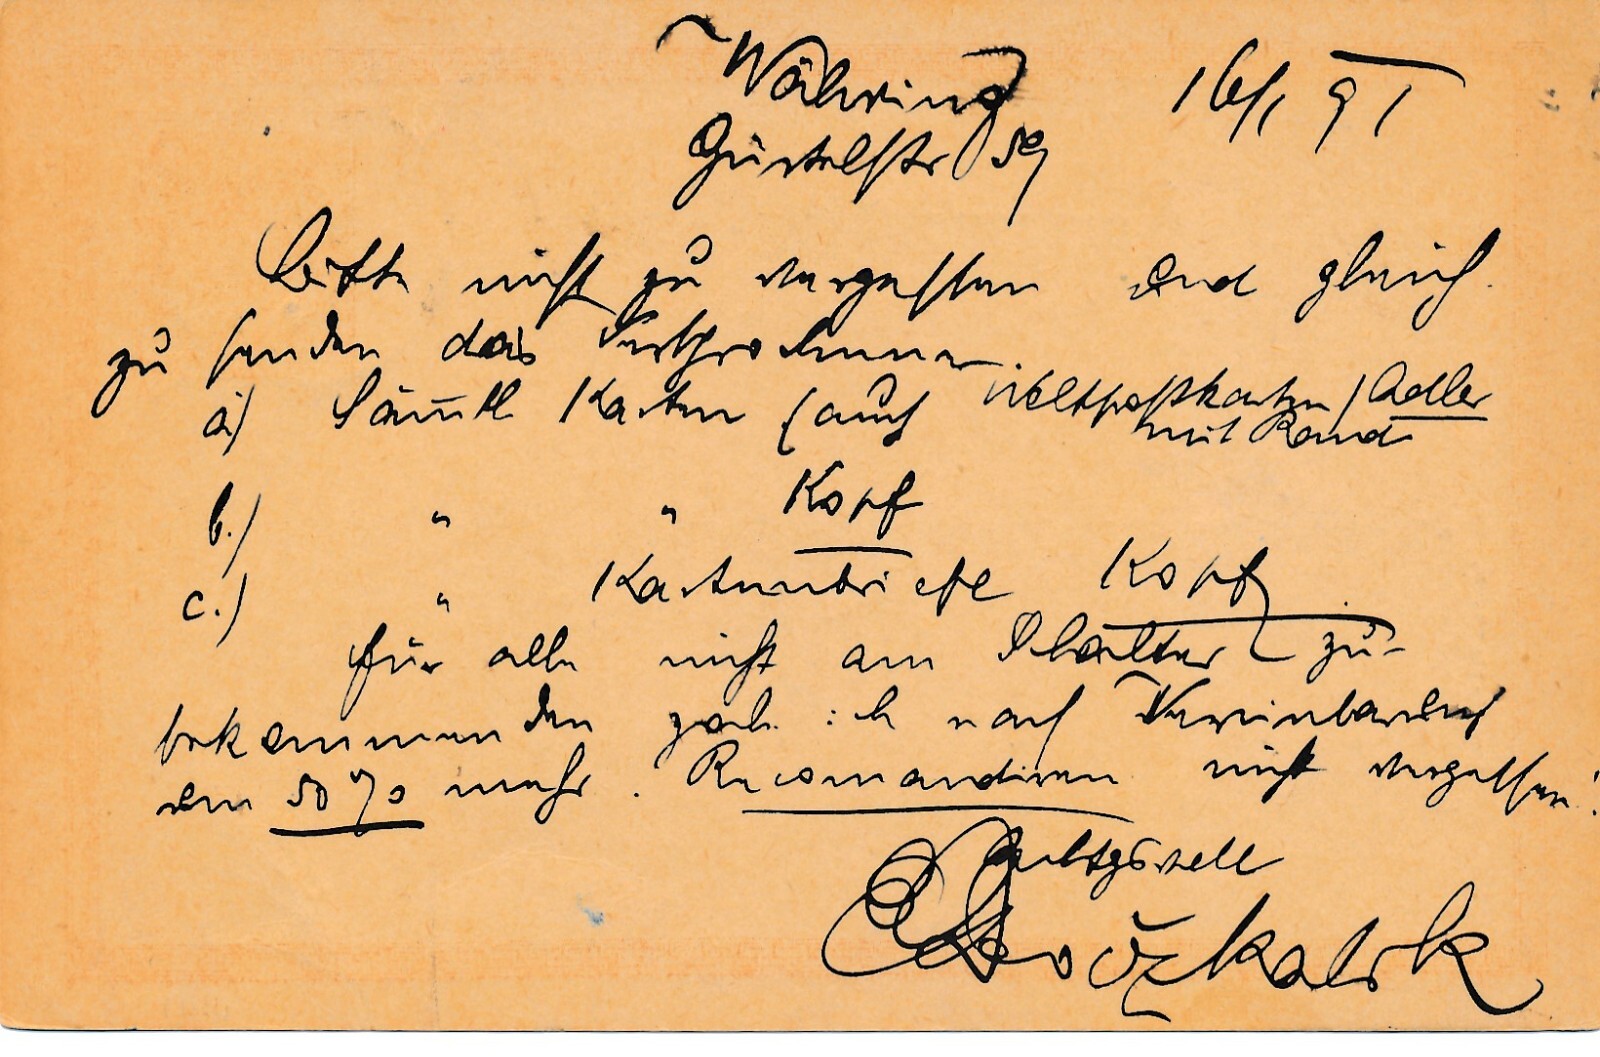 Währing 16/1 91
Gürtelstr 59
Bitte nicht zu vergessen und gleich
zu senden das Versprochene.
a) Sämtl Karten (auch Weltpostkarten / Adler
mit Rand
b.) " " Kopf
c.) " Kartenbriefe Kopf
für alle nicht am Schalter zu-
bekommenden zahle ich nach Vereinbarung
um 50% mehr. Recomandiren nicht vergessen!